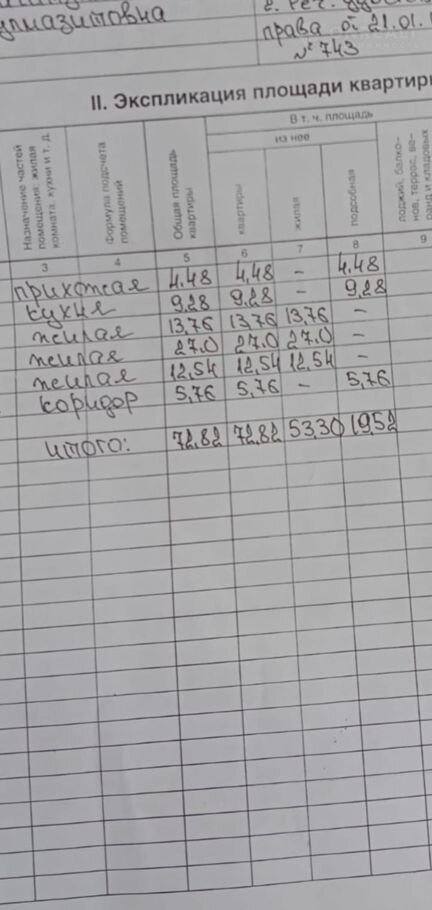 права от 21.01.
№ 743
II. Экспликация площади квартиры
Назначение частей помещения: жилая комната, кухни и т. д.
Формула подсчета помещений
Общая площадь квартиры
В т. ч. площадь
из нее
квартиры
жилая
подсобная
лоджий, балко-
нов, террас, ве-
ранд и кладовых
3 4 5 6 7 8 9
прихожая 4,48 4,48 - 4,48
кухня 9,28 9,28 - 9,28
жилая 13,76 13,76 13,76 -
жилая 27,0 27,0 27,0 -
жилая 12,54 12,54 12,54 -
коридор 5,76 5,76 - 5,76
итого: 72,82 72,82 53,30 19,52